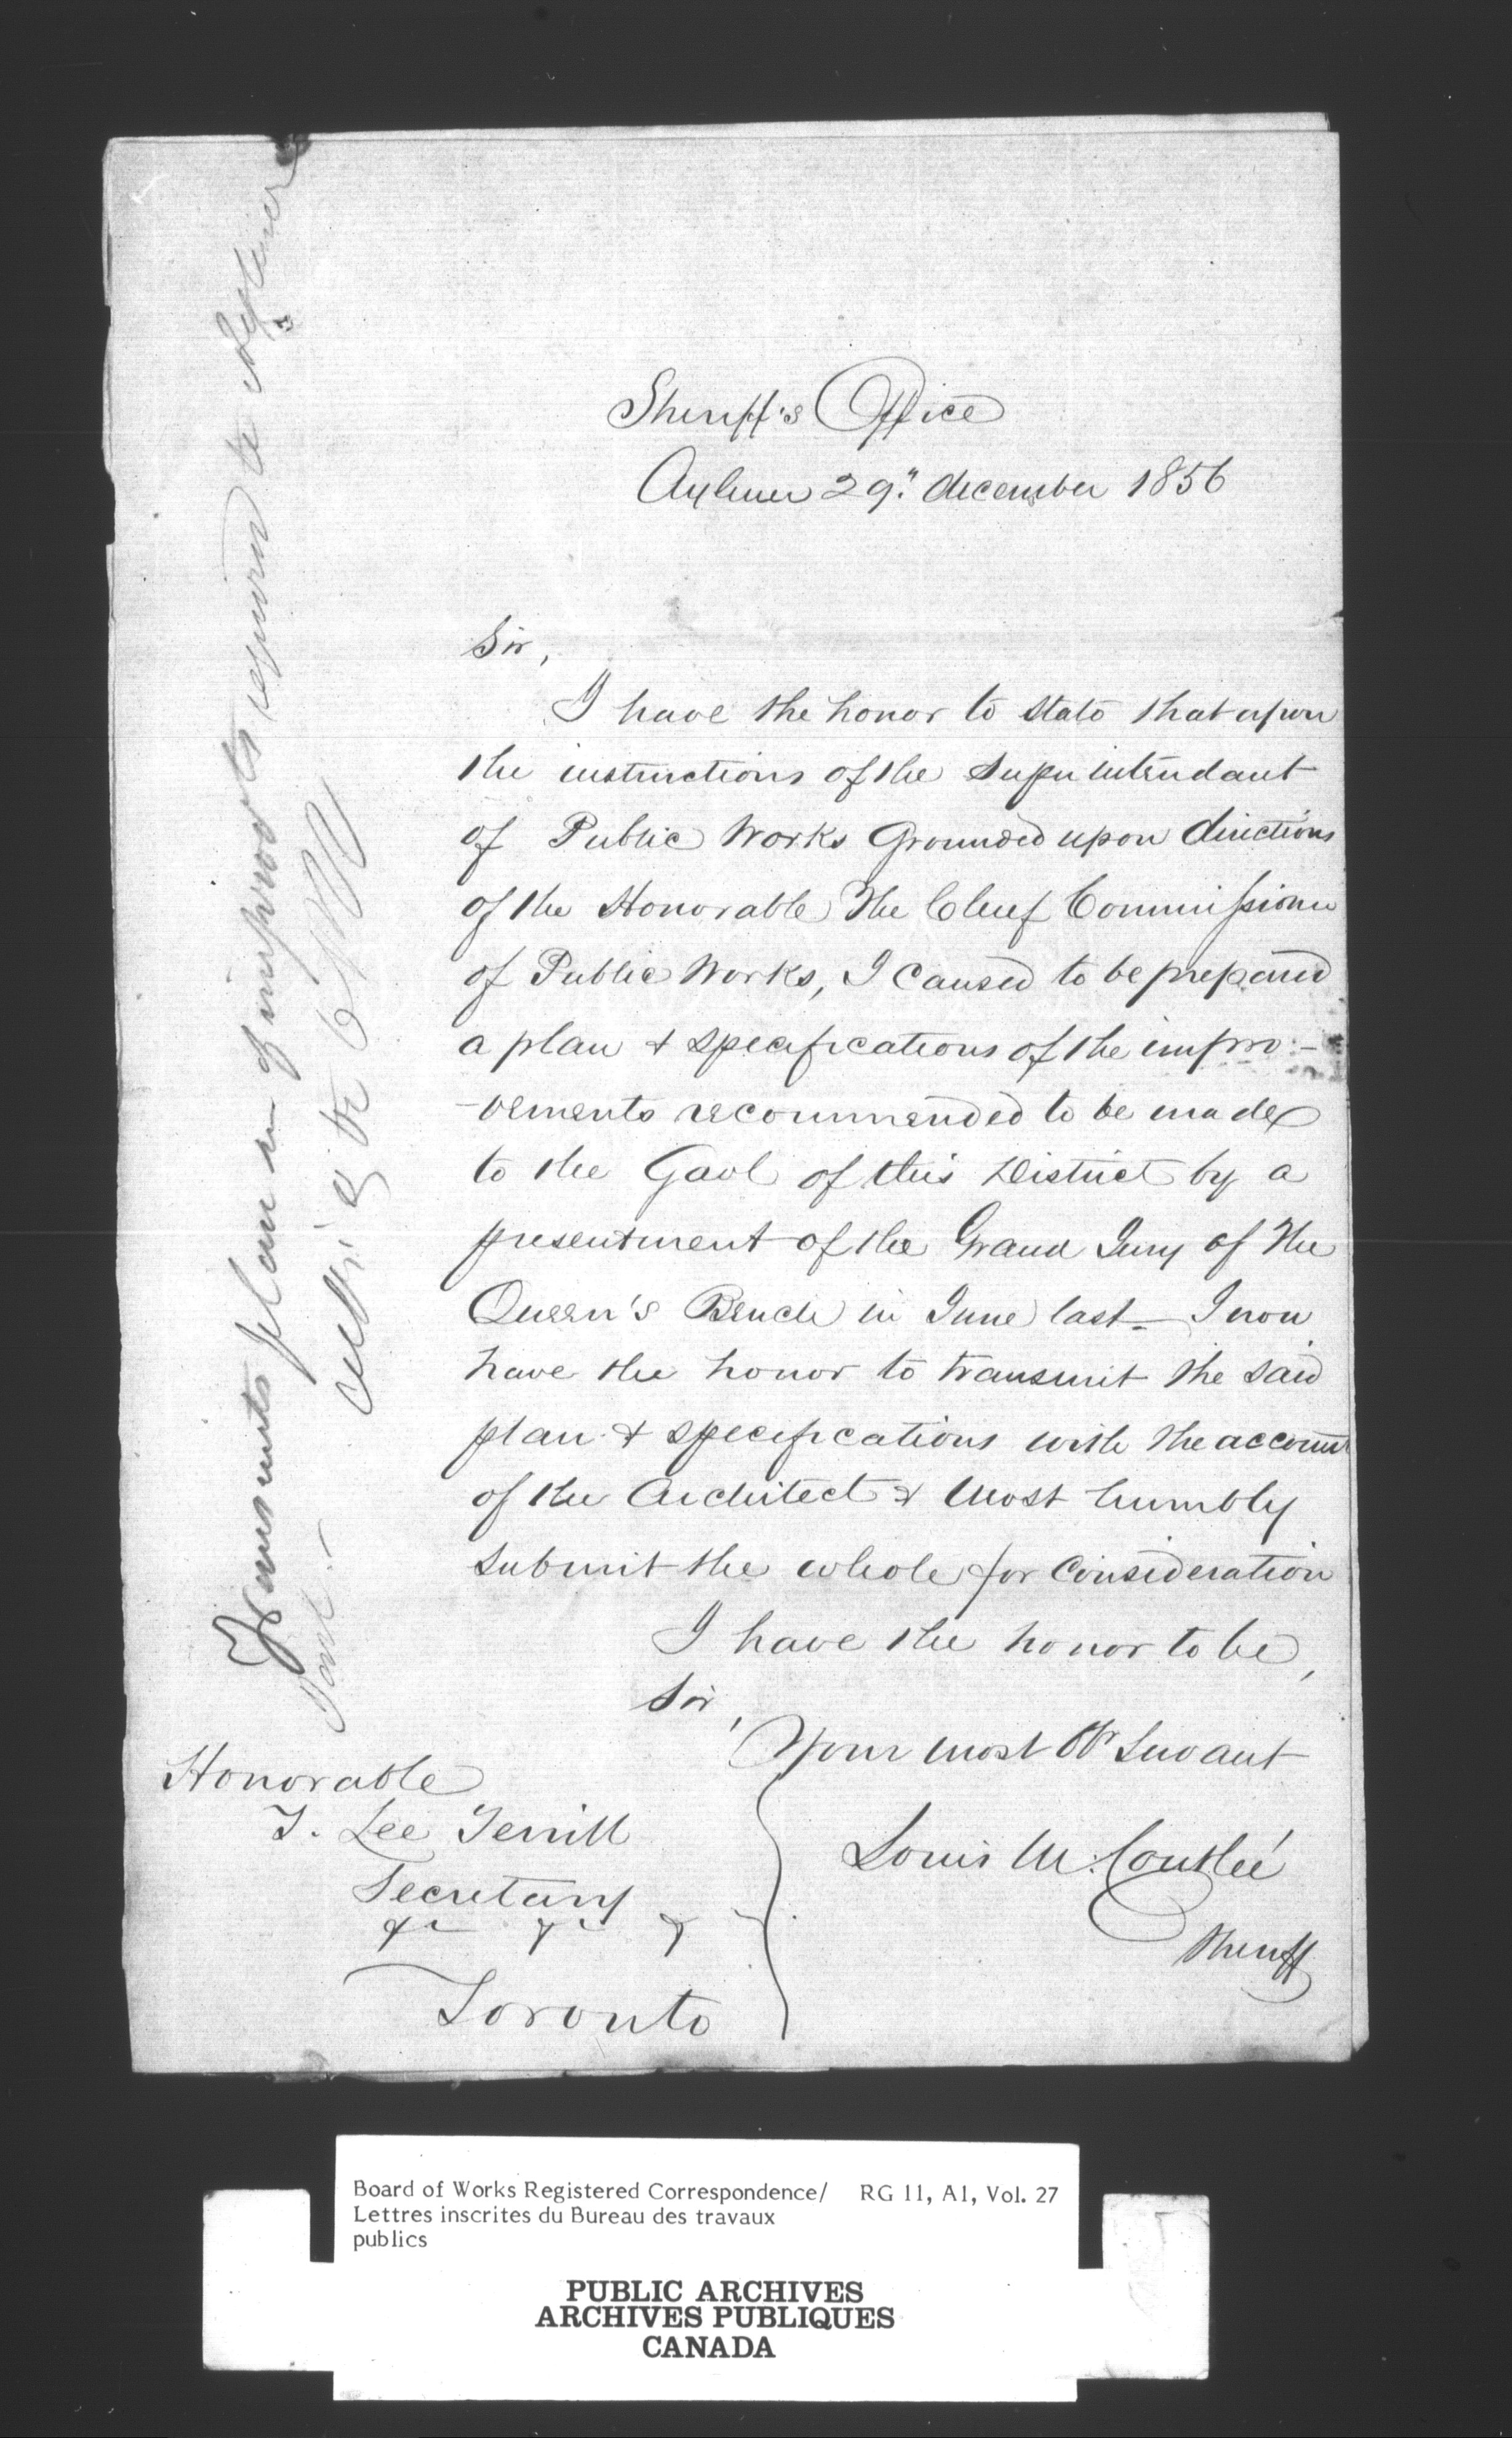 Sheriff's Office
Aylmer 29." december 1856
Sir,
I have the honor to state that upon
the instructions of the Superintendant
of Public Works Grounded upon directions
of the Honorable The Chief Commissioner
of Public Works, I caused to be prepared
a plan & specifications of the impro-
-vements recommended to be made
to the Gaol of this District by a
presentment of the Grand Jury of the
Queen's Bench in June last_ I now
have the honor to transmit the said
plan & specifications with the account
of the Architect & most humbly
submit the whole for Consideration
I have the honor to be,
Sir,
Your most Ob Servant
Louis M. Coutlée
Sheriff
Honorable
T. Lee Terrill
Secretary
Toronto
Transmits plan of required to Aylmer
Gaol.-
Board of Works Registered Correspondence/ RG 11, A1, Vol. 27
Lettres inscrites du Bureau des travaux
publics
PUBLIC ARCHIVES
ARCHIVES PUBLIQUES
CANADA